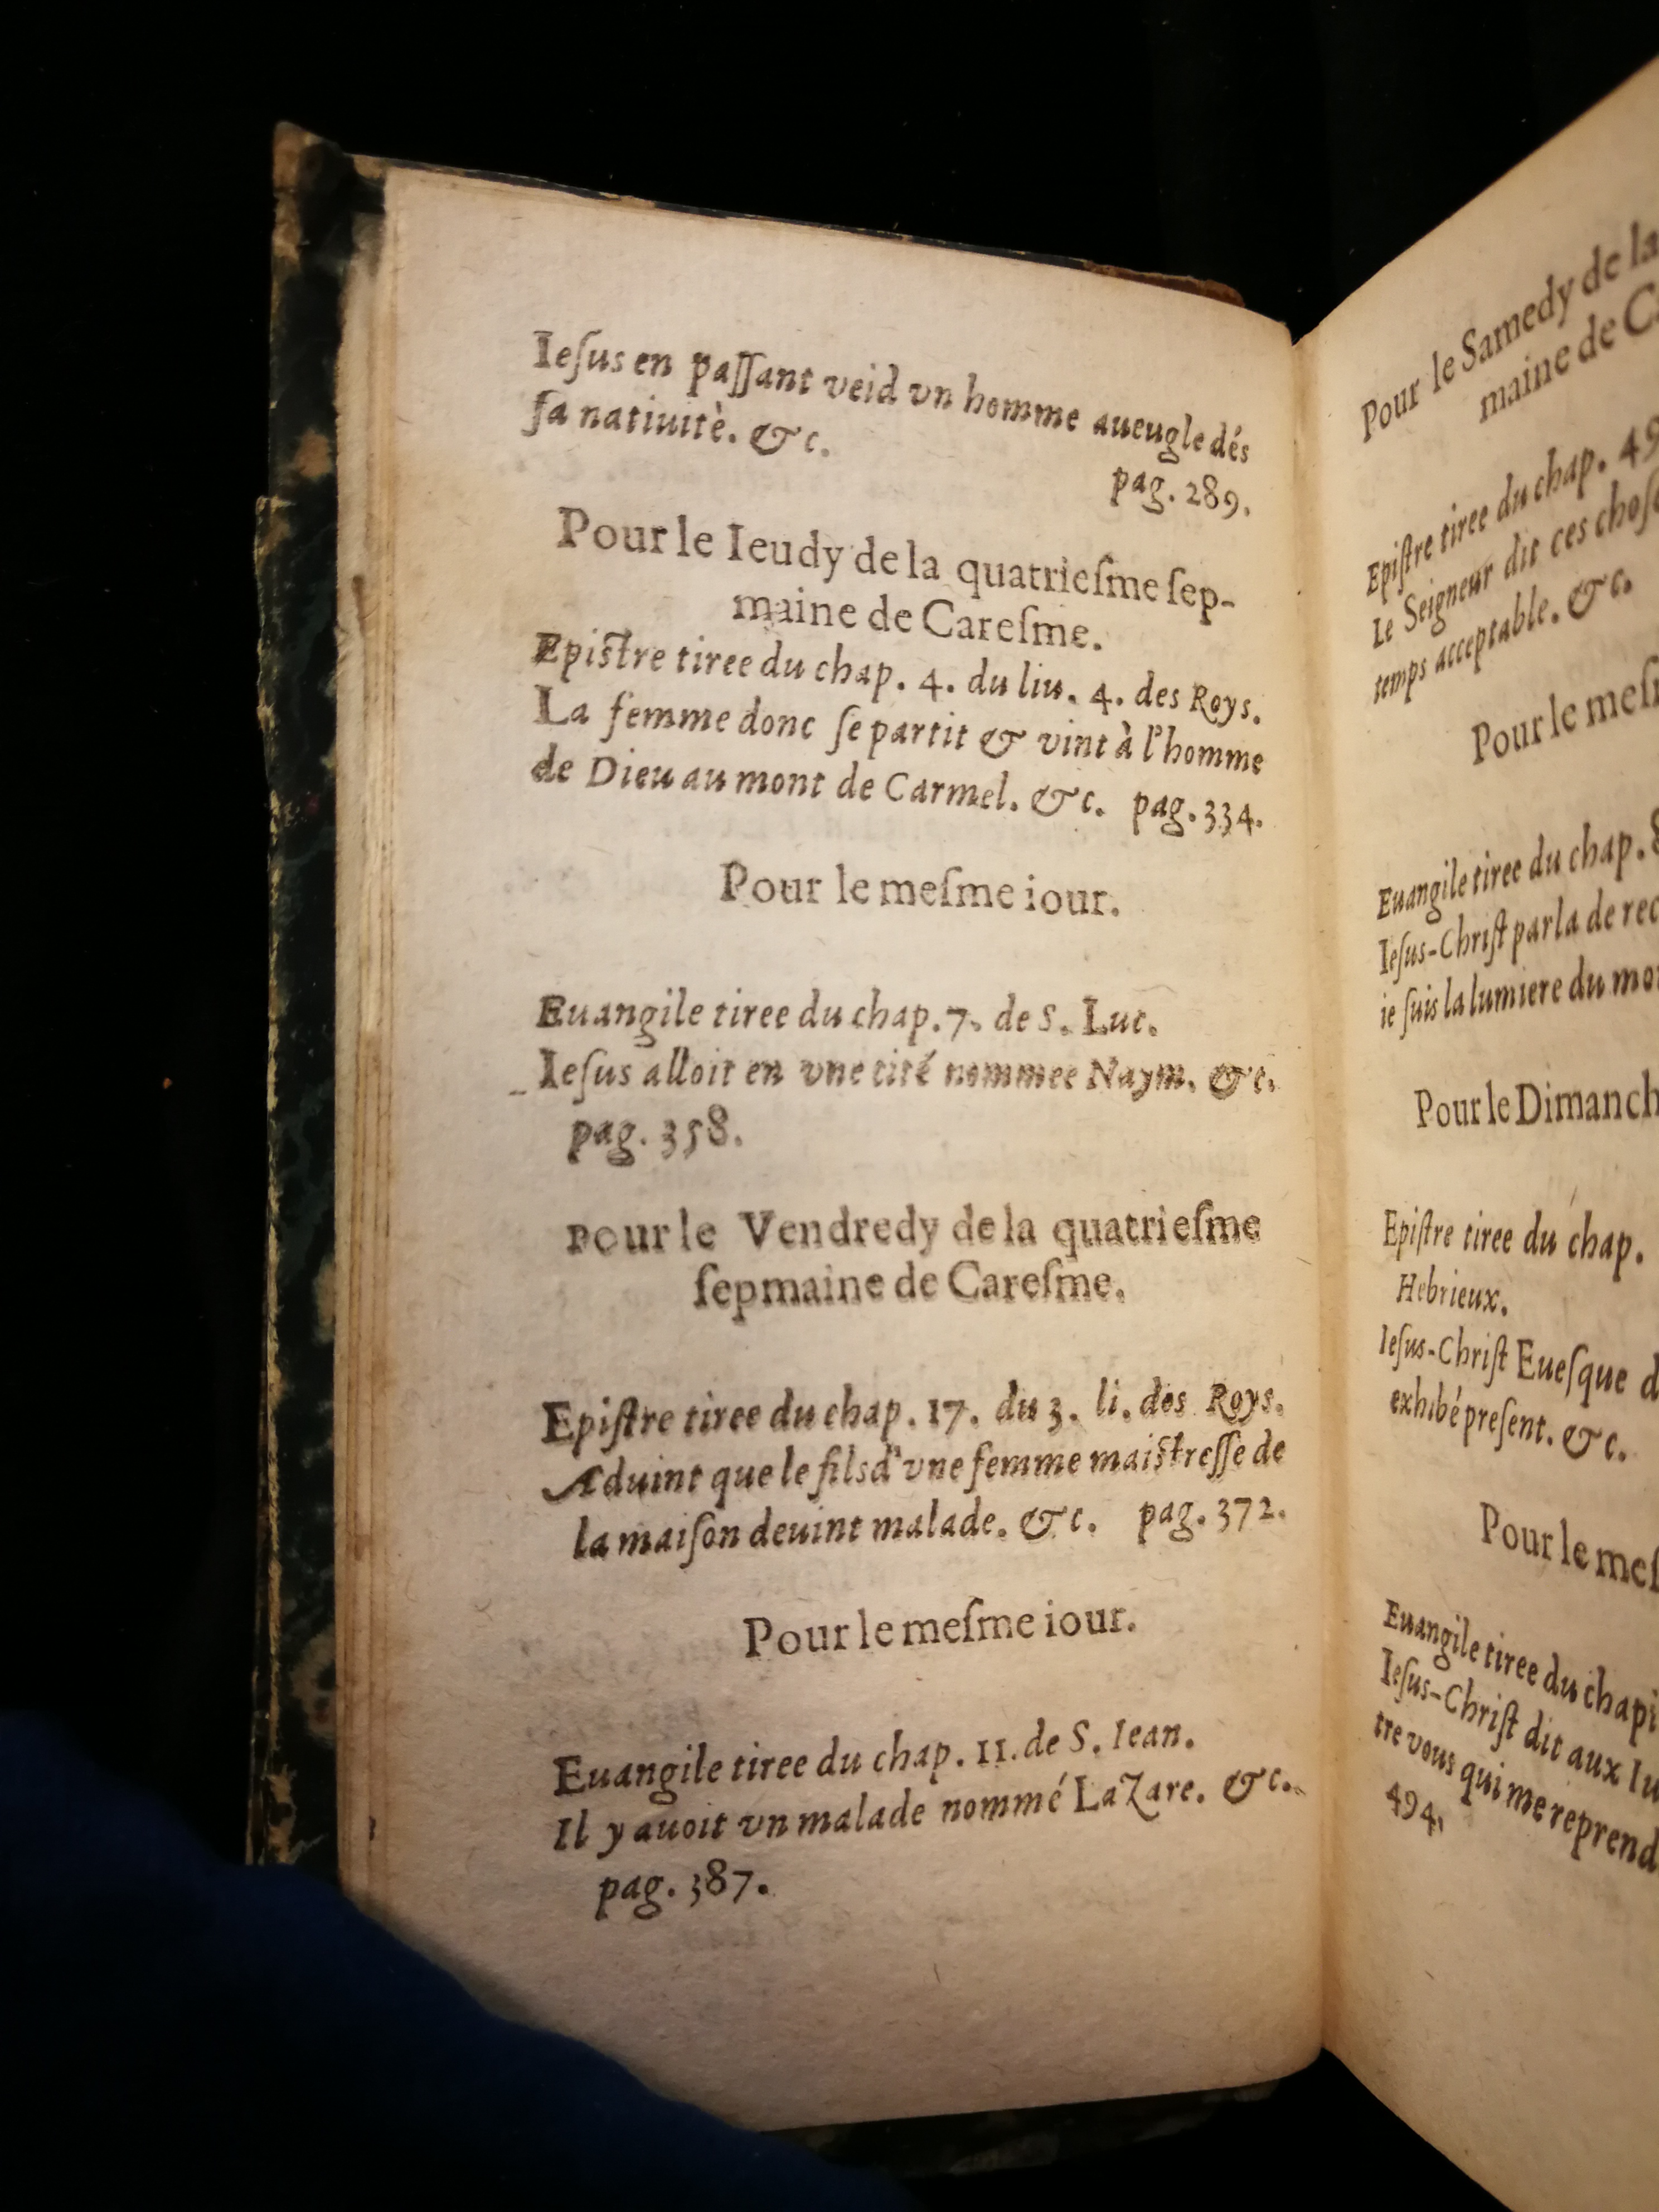 Ieſus en paſſant veid vn homme aueugle dés
ſa natiuitè. &c.
pag. 289.
Pour le Ieudy de la quatrieſme ſep-
maine de Careſme.
Epiſtre tiree du chap. 4. du liu. 4. des Roys.
La femme donc ſe partit & vint à l'homme
de Dieu au mont de Carmel. &c. pag. 334.
Pour le meſme iour.
Euangile tiree du chap. 7. de S. Luc.
Ieſus alloit en vne cité nommee Naym. &c.
pag. 358.
Pour le Vendredy de la quatrieſme
ſepmaine de Careſme.
Epiſtre tiree du chap. 17. du 3. li. des Roys.
Aduint que le fils d'vne femme maiſtreſſe de
la maiſon deuint malade. &c. pag. 372.
Pour le meſme iour.
Euangile tiree du chap. 11. de S. Iean.
Il y auoit vn malade nommé LaZare. &c.
pag. 387.
Pour le Samedy de la
maine de
Epiſtre tiree du chap. 49
Le Seigneur dit ces choſ
temps acceptable. &c.
Pour le meſ
Euangile tiree du chap. 8
Ieſus-Chriſt parla de rec
ie ſuis la lumiere du mo
Pour le Dimanch
Epiſtre tiree du chap.
Hebrieux.
Ieſus-Chriſt Eueſque d
exhibé preſent. &c.
Pour le meſ
Euangile tiree du chapi
Ieſus-Chriſt dit aux Iu
tre vous qui me reprend
494.